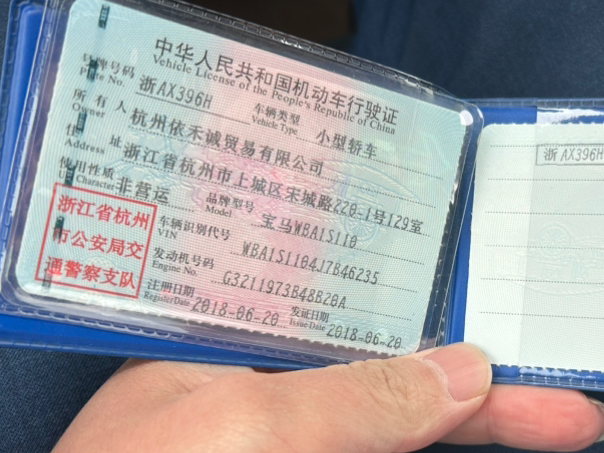 中华人民共和国机动车行驶证
Vehicle License of the People's Republic of China
号牌号码 浙AX396H 车辆类型 小型轿车
Plate No. Vehicle Type
所有人 杭州依禾诚贸易有限公司
Owner
住址 浙江省杭州市上城区宋城路220-1号129室
Address
使用性质 非营运 品牌型号 宝马WBA1S110
Character Model
浙江省杭州
市公安局交
通警察支队
车辆识别代号 WBA1S1104J7B46235
VIN
发动机号码 G3211973B48B20A
Engine No.
注册日期 2018-06-20 发证日期 2018-06-20
Register Date Issue Date
浙AX396H